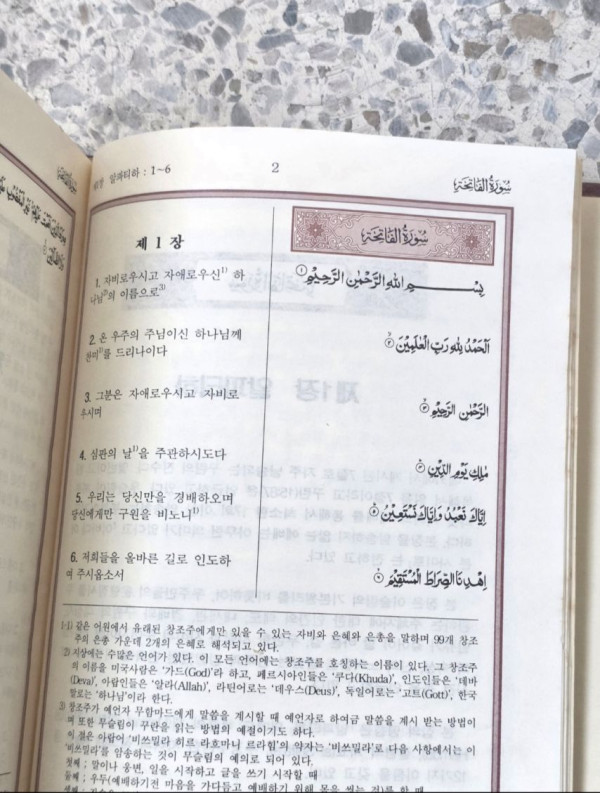 제1장 알파티하 : 1~6
2
سُورَةُ الفَاتِحَةِ
제 1 장
سُورَةُ الفَاتِحَةِ
1. 자비로우시고 자애로우신1) 하
나님2)의 이름으로3)
بِسْمِ اللهِ الرَّحْمٰنِ الرَّحِيْمِ ۝١
2. 온 우주의 주님이신 하나님께
찬미1)를 드리나이다
اَلْحَمْدُ لِلّٰهِ رَبِّ الْعٰلَمِيْنَ ۝٢
3. 그분은 자애로우시고 자비로
우시며
الرَّحْمٰنِ الرَّحِيْمِ ۝٣
4. 심판의 날1)을 주관하시도다
مٰلِكِ يَوْمِ الدِّيْنِ
5. 우리는 당신만을 경배하오며
당신에게만 구원을 비노니1)
اِيَّاكَ نَعْبُدُ وَاِيَّاكَ نَسْتَعِيْنُ
6. 저희들을 올바른 길로 인도하
여 주시옵소서
اِهْدِنَا الصِّرَاطَ الْمُسْتَقِيْمَ
1-1) 같은 어원에서 유래된 창조주에게만 있을 수 있는 자비와 은혜와 은총을 말하며 99개 창조
주의 은총 가운데 2개의 은혜로 해석되고 있다.
2) 지상에는 수많은 언어가 있다. 이 모든 언어에는 창조주를 호칭하는 이름이 있다. 그 창조주
의 이름을 미국사람은 '가드(God)'라 하고, 페르시아인들은 '쿠다(Khuda)', 인도인들은 '데바
(Deva)', 아랍인들은 '알라(Allah)', 라틴어로는 '데우스(Deus)', 독일어로는 '고트(Gott)', 한국
말로는 '하나님'이라 한다.
3) 창조주가 예언자 무함마드에게 말씀을 계시할 때 예언자로 하여금 말씀을 계시 받는 방법이
며 또한 무슬림이 꾸란을 읽는 방법의 예절이기도 하다.
이 절은 아랍어 '비쓰밀라 히르 라흐마니 르라힘'의 약자는 '비쓰밀라'로 다음 사항에서는 이
'비쓰밀라'를 암송하는 것이 무슬림의 예의로 되어 있다.
첫째 ; 말이나 웅변, 일을 시작하고 글을 쓰기 시작할 때
둘째 ; 우두(예배하기전 마음을 가다듬고 예배하기 위해 몸을 씻는 것)를 할 때